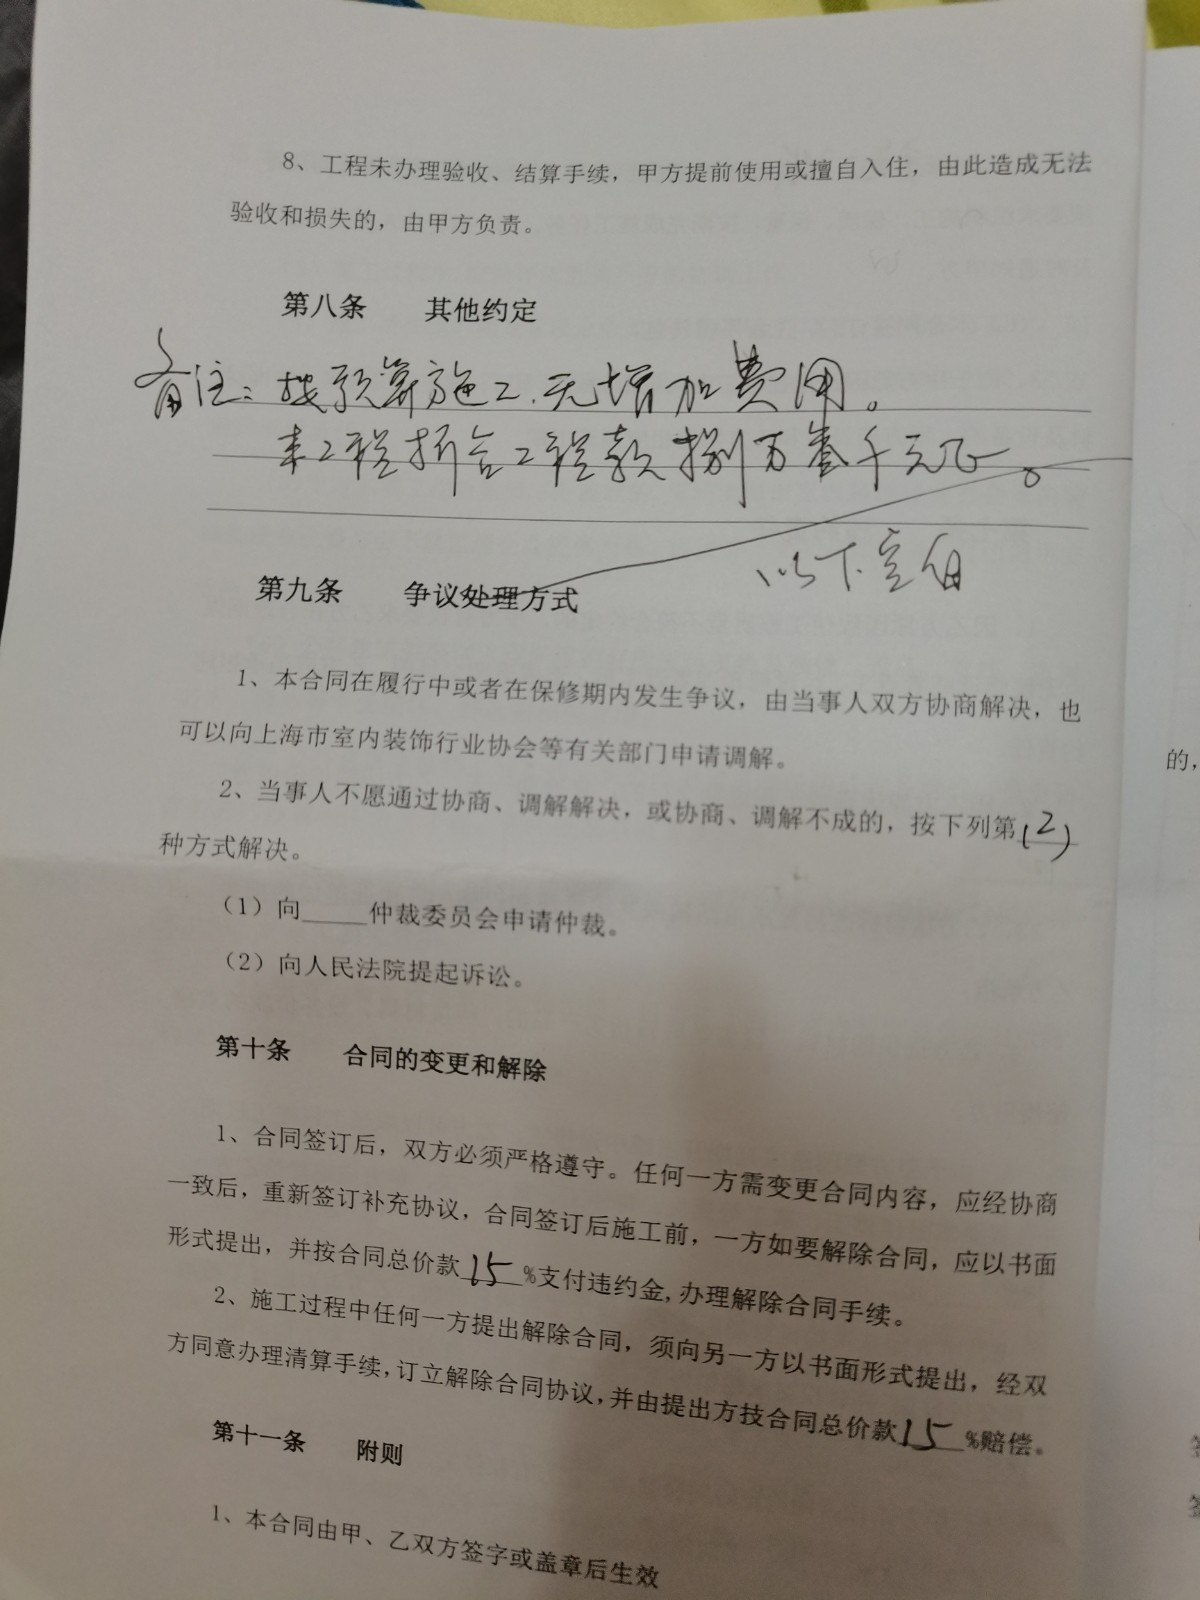 8、工程未办理验收、结算手续，甲方提前使用或擅自入住，由此造成无法
验收和损失的，由甲方负责。
第八条 其他约定
备注：按预算施工.无增加费用。
本工程折合工程款捌万叁千元正。
以下空白
第九条 争议处理方式
1、本合同在履行中或者在保修期内发生争议，由当事人双方协商解决，也
可以向上海市室内装饰行业协会等有关部门申请调解。
2、当事人不愿通过协商、调解解决，或协商、调解不成的，按下列第(2)
种方式解决。
（1）向_____仲裁委员会申请仲裁。
（2）向人民法院提起诉讼。
第十条 合同的变更和解除
1、合同签订后，双方必须严格遵守。任何一方需变更合同内容，应经协商
一致后，重新签订补充协议，合同签订后施工前，一方如要解除合同，应以书面
形式提出，并按合同总价款15%支付违约金,办理解除合同手续。
2、施工过程中任何一方提出解除合同，须向另一方以书面形式提出，经双
方同意办理清算手续,订立解除合同协议,并由提出方技合同总价款15%赔偿。
第十一条 附则
1、本合同由甲、乙双方签字或盖章后生效
的，